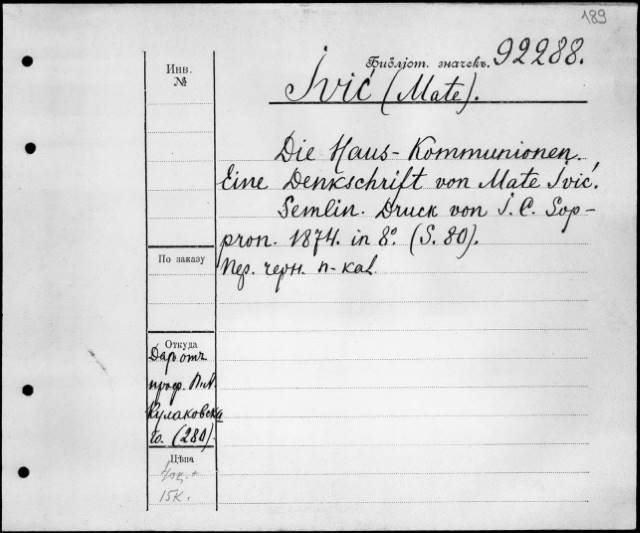 189
Библіот. значекъ. 92288.
Инв.
№
Ivić (Mate).
Die Haus-Kommunionen.
Eine Denkschrift von Mate Ivić.
Semlin. Druck von I. C. Sop-
pron. 1874. in 8º. (S. 80).
черн.
По заказу
Откуда
Даръ отъ
проф. П. А.
Кулаковска
го. (280).
Цѣна
15к.